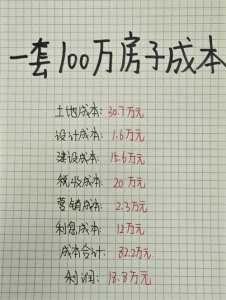 一套100万房子成本
土地成本：30.7万元
设计成本：1.6万元
建设成本：15.6万元
税收成本：20万元
营销成本：2.3万元
利息成本：12万元
成本合计：82.2万元
利润：18.8万元